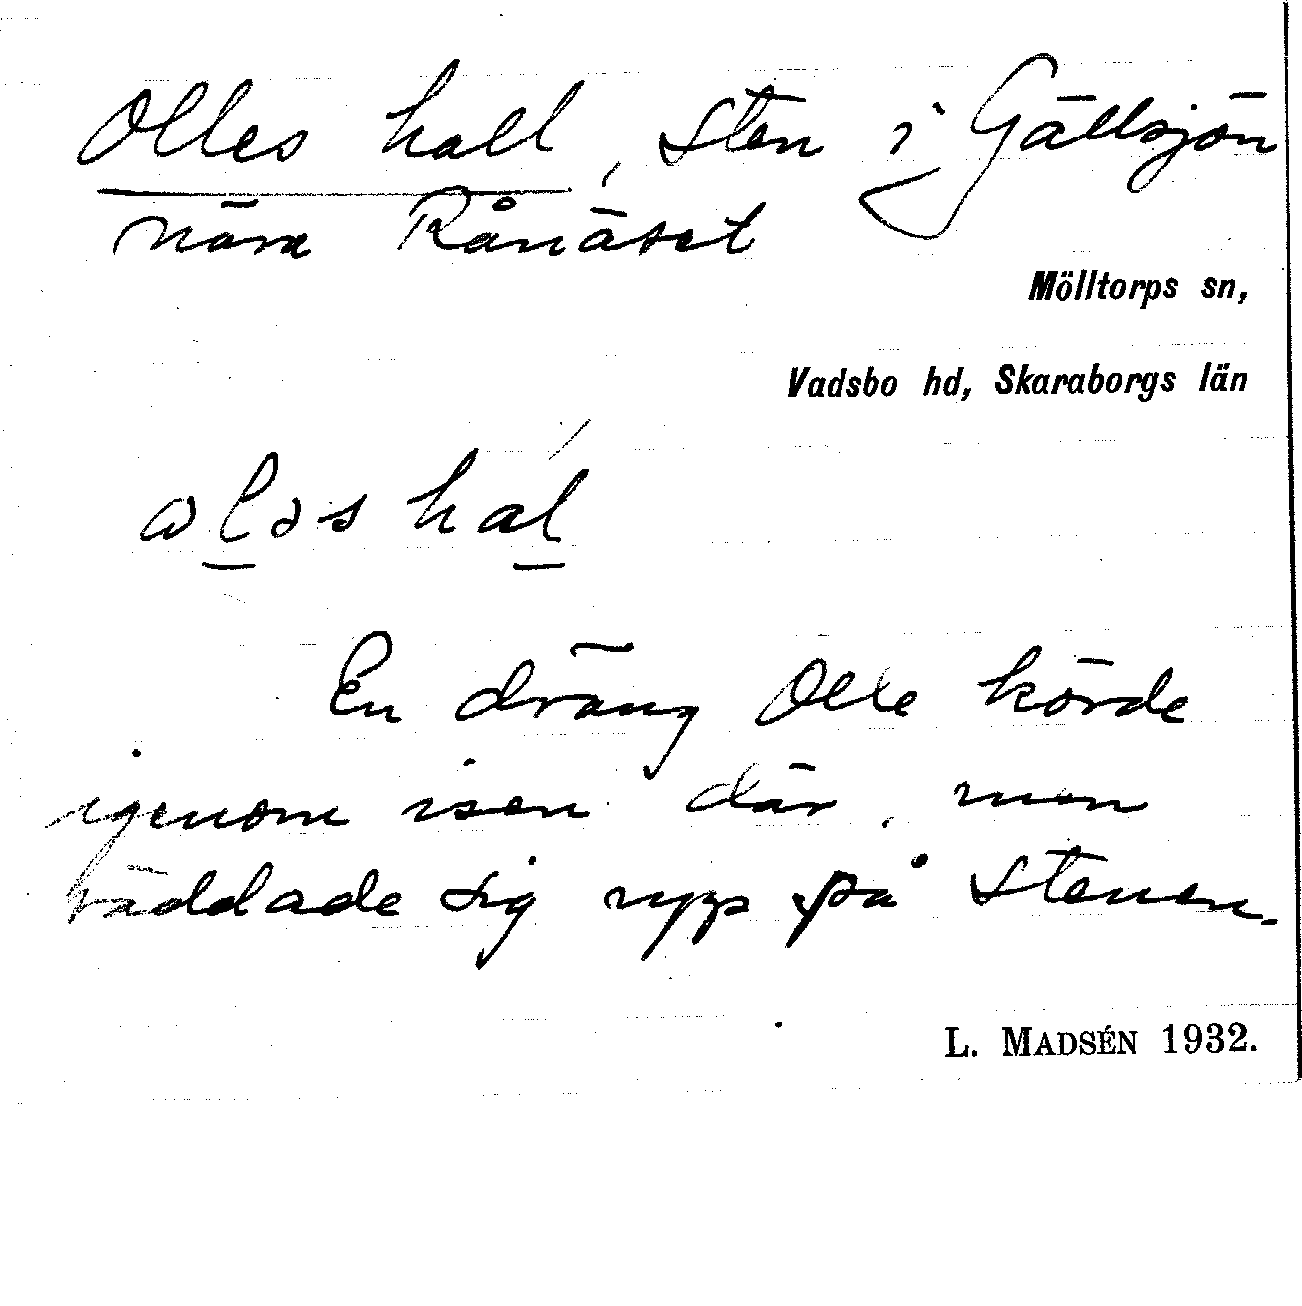 Olles hall, sten i Gällsjön
nära Rånäset
Mölltorps sn,
Vadsbo hd, Skaraborgs län
ωl̲əs hal̲
En dräng Olle körde
igenom isen där, men
räddade sig upp på stenen.
L. MADSÉN 1932.